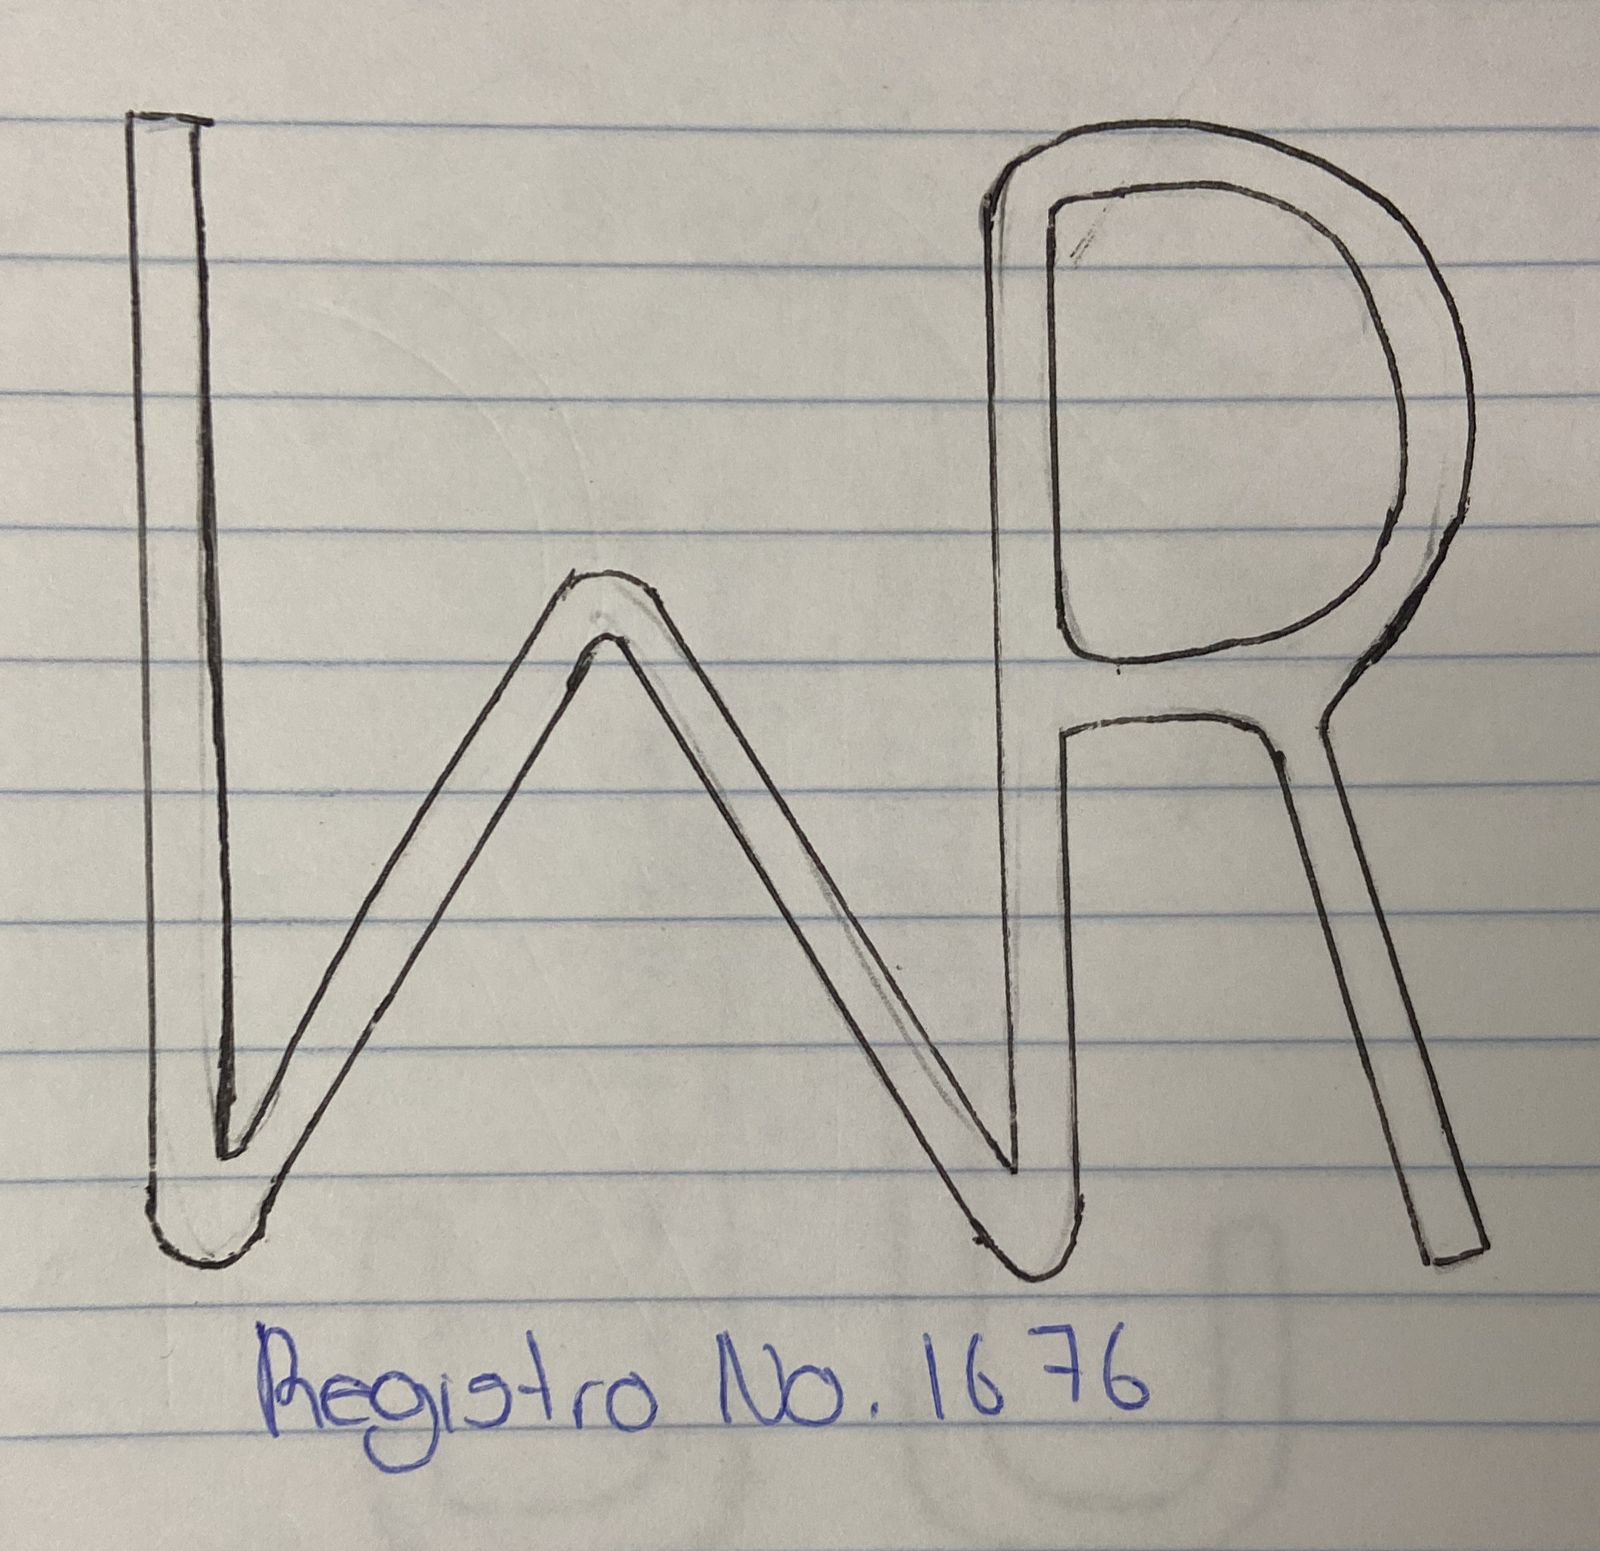 WR
Registro No. 1676